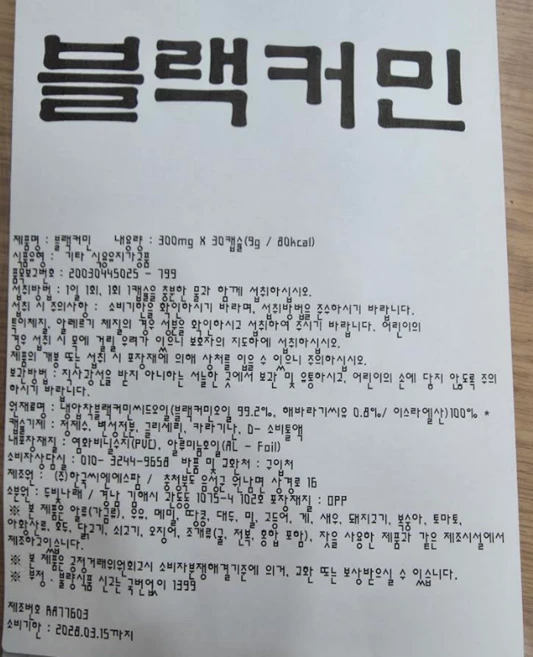 블랙커민
제품명 : 블랙커민 내용량 : 300mg X 30캡슐(9g / 80kcal)
식품유형 : 기타 식용유지가공품
품목보고번호 : 20030445025 - 799
섭취방법 : 1일 1회, 1회 1캡슐을 충분한 물과 함께 섭취하십시오.
섭취 시 주의사항 : 소비기한을 확인하시기 바라며, 섭취방법을 준수하시기 바랍니다.
특이체질, 알레르기 체질의 경우 성분을 확인하시고 섭취하여 주시기 바랍니다. 어린이의
경우 섭취 시 목에 걸릴 우려가 있으니 보호자의 지도하에 섭취하십시오.
제품의 개봉 또는 섭취 시 포장재에 의해 상처를 입을 수 있으니 주의하십시오.
보관방법 : 직사광선을 받지 아니하는 서늘한 곳에서 보관 및 유통하시고, 어린이의 손에 닿지 않도록 주의
하시기 바랍니다.
원재료명 : 냉압착블랙커민씨드오일(블랙커민오일 99.2%, 해바라기씨유 0.8%/ 이스라엘산)100% *
캡슐기제 : 정제수, 변성전분, 글리세린, 카라기난, D- 소비톨액
내포장재질 : 염화비닐수지(PVC), 알루미늄호일(AL - Foil)
소비자상담실 : 010- 3244-9658 반품 및 교환처 : 구입처
제조원 : (주)한국씨에스팜 / 충청북도 음성군 원남면 상경로 16
소분원 : 두빛나래 / 경남 김해시 관동동 1075-4 102호 포장재질 : OPP
※ 본 제품은 알류(가금류), 우유, 메밀, 땅콩, 대두, 밀, 고등어, 게, 새우, 돼지고기, 복숭아, 토마토,
아황산류, 호두, 닭고기, 쇠고기, 오징어, 조개류(굴, 전복, 홍합 포함), 잣을 사용한 제품과 같은 제조시설에서
제조하고있습니다.
※ 본 제품은 공정거래위원회고시 소비자분쟁해결기준에 의거, 교환 또는 보상받으실 수 있습니다.
※ 부정 · 불량식품 신고는 국번없이 1399
제조번호 RA77603
소비기한 : 2028.03.15까지